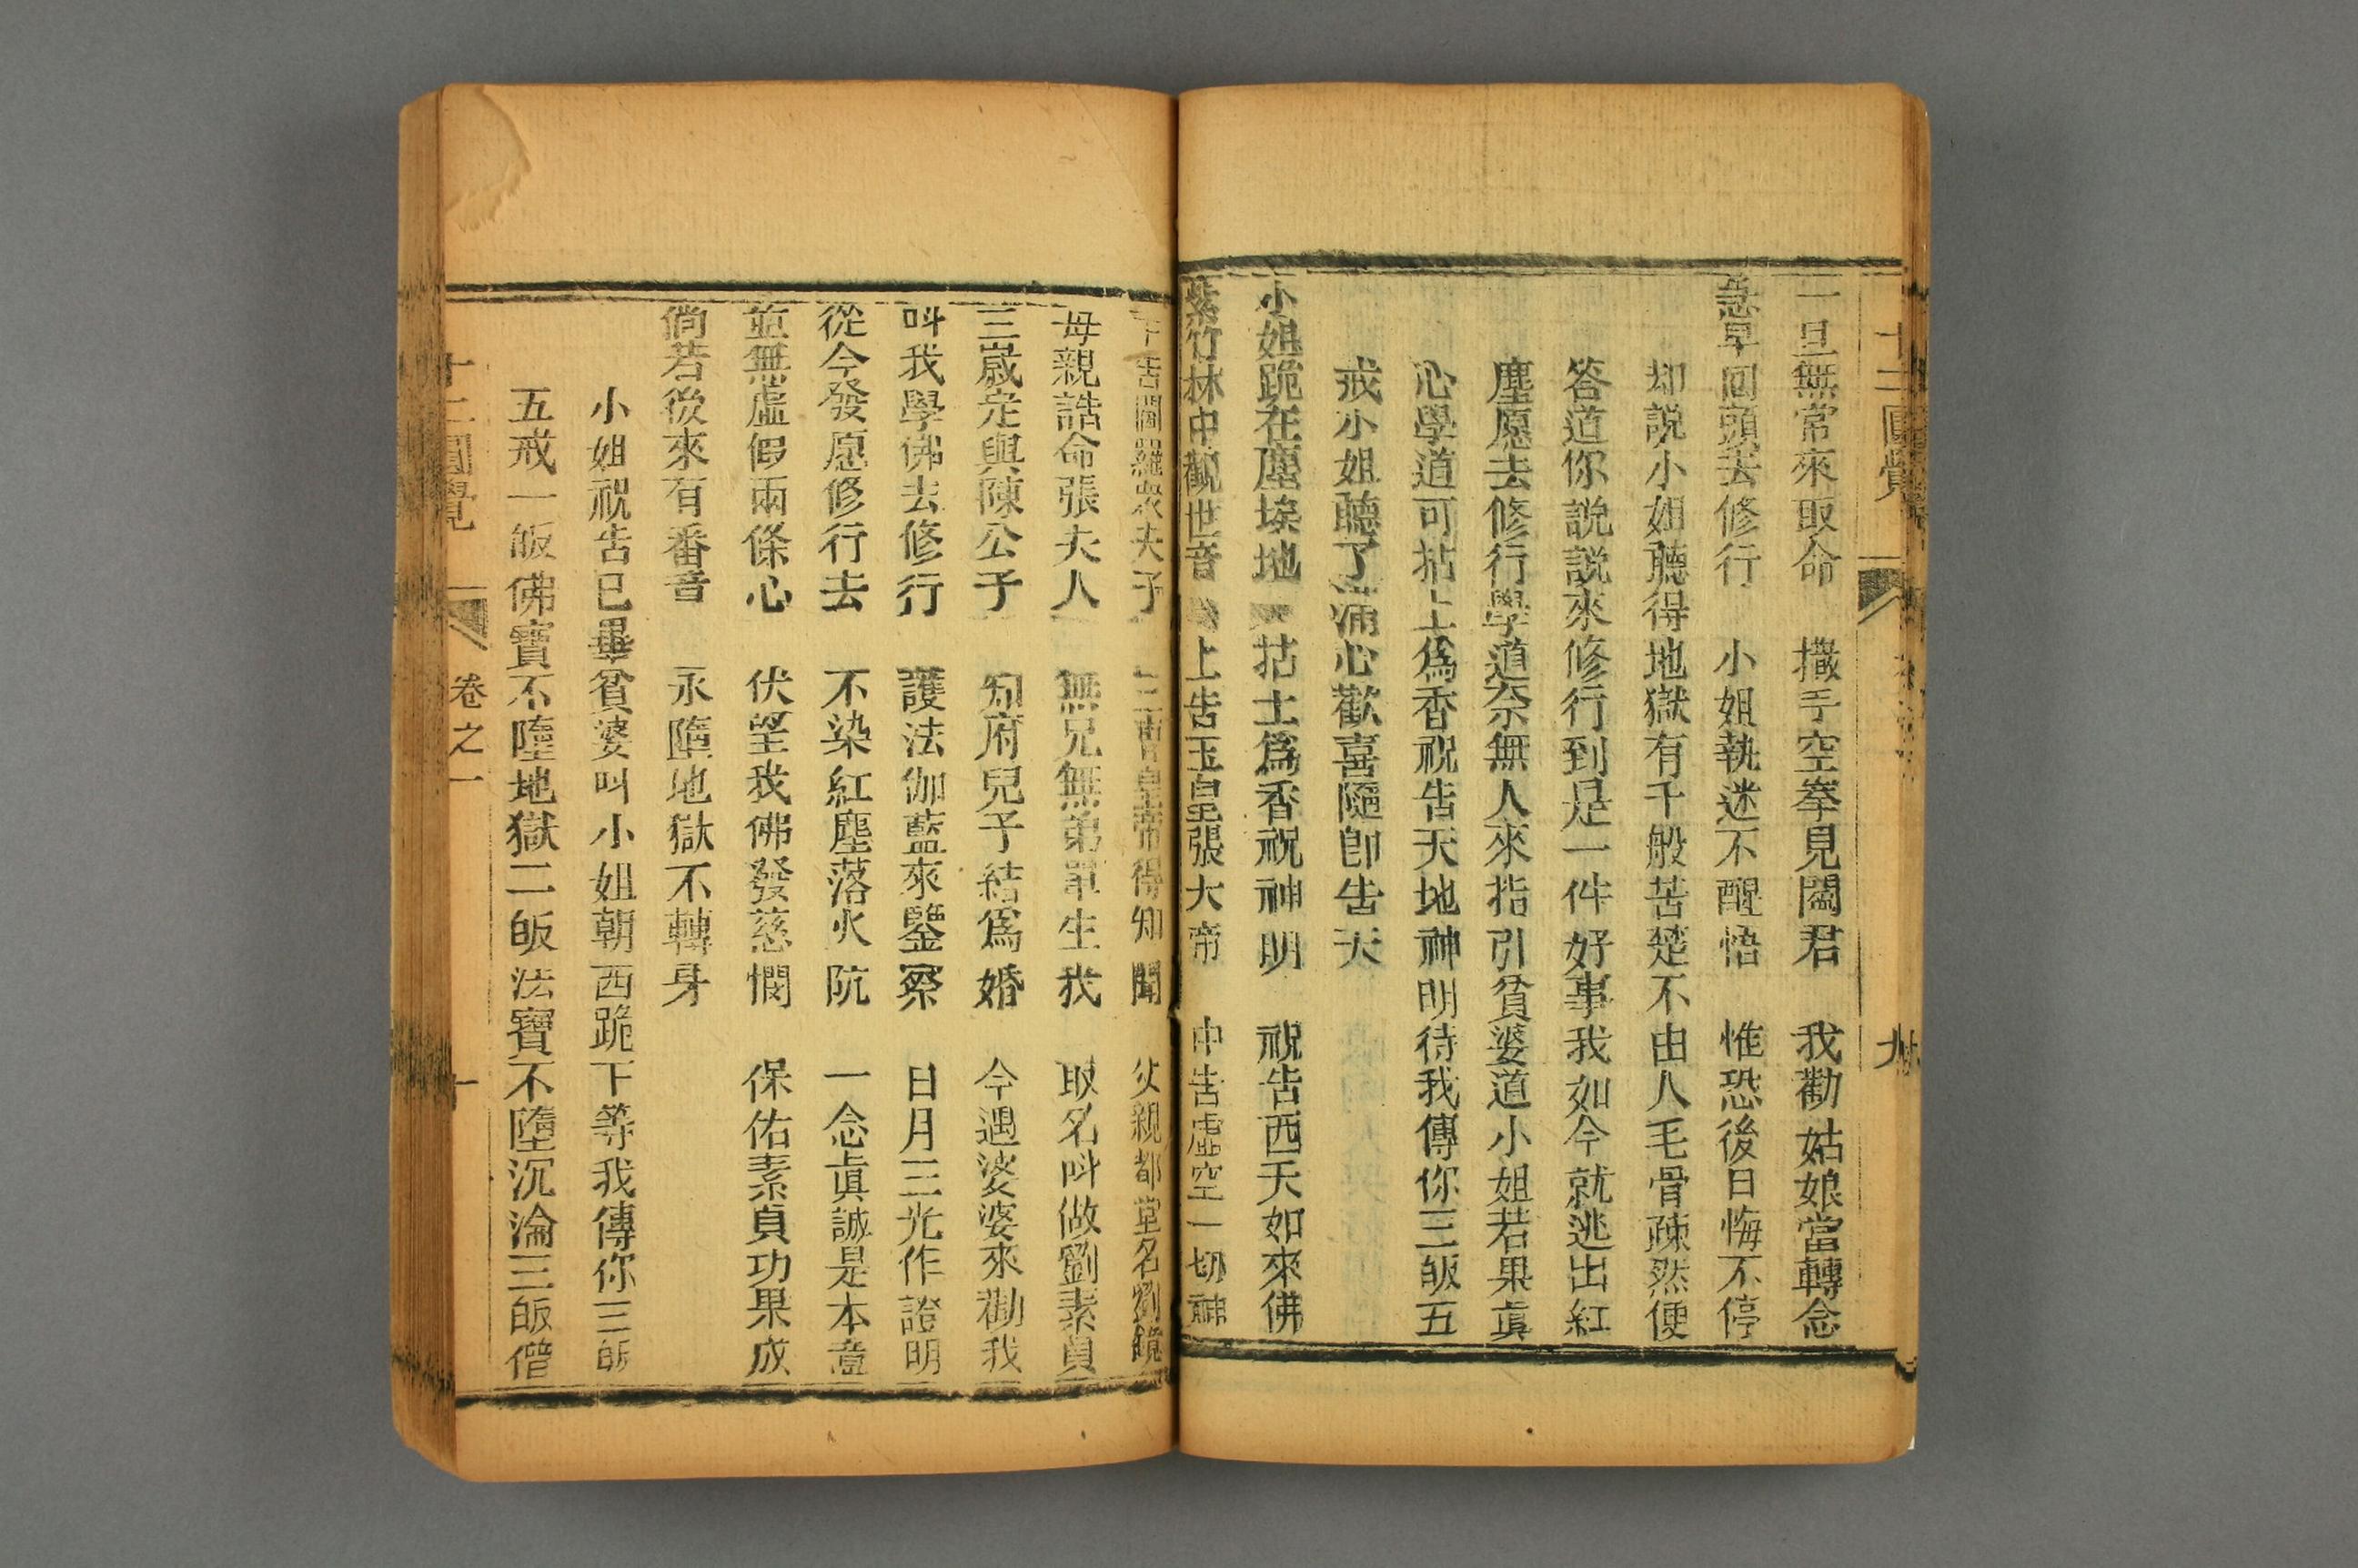 十二圓覺 九
一旦無常來取命 撒手空拳見閻君 我勸姑娘當轉念
急早回頭去修行 小姐執迷不醒悟 惟恐後日悔不停
却説小姐聽得地獄有千般苦楚不由人毛骨疎然便
答道你説説來修行到是一件好事我如今就逃出紅
塵愿去修行學道奈無人來指引貧婆道小姐若果眞
心學道可拈土爲香祝告天地神明待我傳你三皈五
戒小姐聽了滿心歡喜隨卽告天
小姐跪在塵埃地 拈土爲香祝神明 祝告西天如來佛
紫竹林中觀世音 上告玉皇張大帝 中告虛空一切神
下告閻羅衆夫子 三曹皇帝得知聞 父親都堂名劉鏡
母親誥命張夫人 無兄無弟單生我 取名呌做劉素貞
三歲定與陳公子 知府兒子結爲婚 今遇婆婆來勸我
呌我學佛去修行 護法伽藍來鑒察 日月三光作證明
從今發愿修行去 不染紅塵落火阬 一念眞誠是本意
並無虛假兩條心 伏望我佛發慈憫 保佑素貞功果成
倘若後來有番音 永墮地獄不轉身
小姐祝告已畢貧婆叫小姐朝西跪下等我傳你三皈
五戒一皈佛寶不墮地獄二皈法寶不墮沉淪三皈僧
十二圓覺 卷之一 十